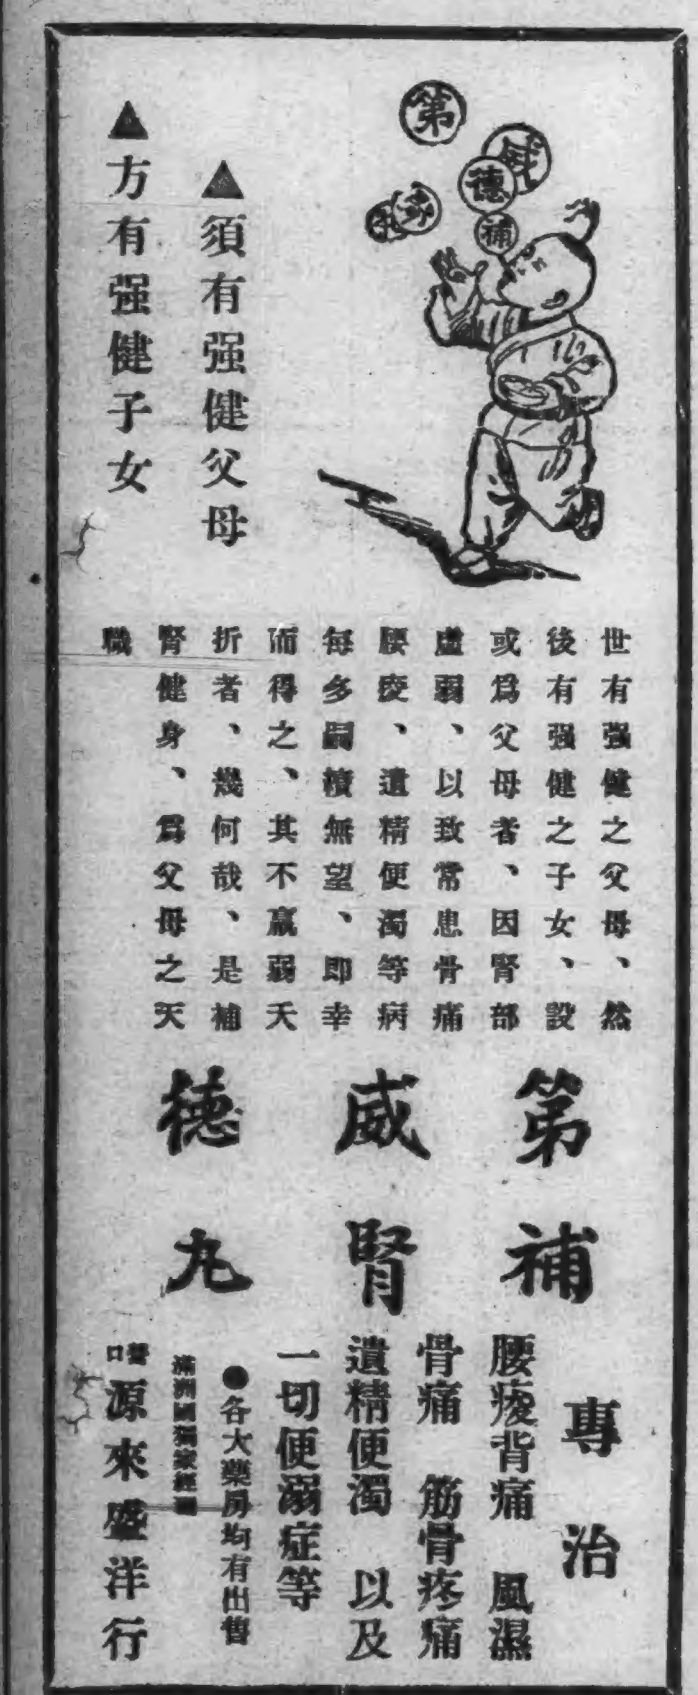 第威德補腎丸
▲須有强健父母
▲方有强健子女
世有强健之父母、然
後有强健之子女、設
或爲父母者、因腎部
虛弱、以致常患骨痛
腰痠、遺精便濁等病
每多嗣續無望、即幸
而得之、其不羸弱夭
折者、幾何哉、是補
腎健身、爲父母之天
職
第威德
補腎丸
專治
腰痠背痛 風濕
骨痛 筋骨疼痛
遺精便濁 以及
一切便溺症等
●各大藥房均有出售
滿洲國獨家經理
營口源來盛洋行